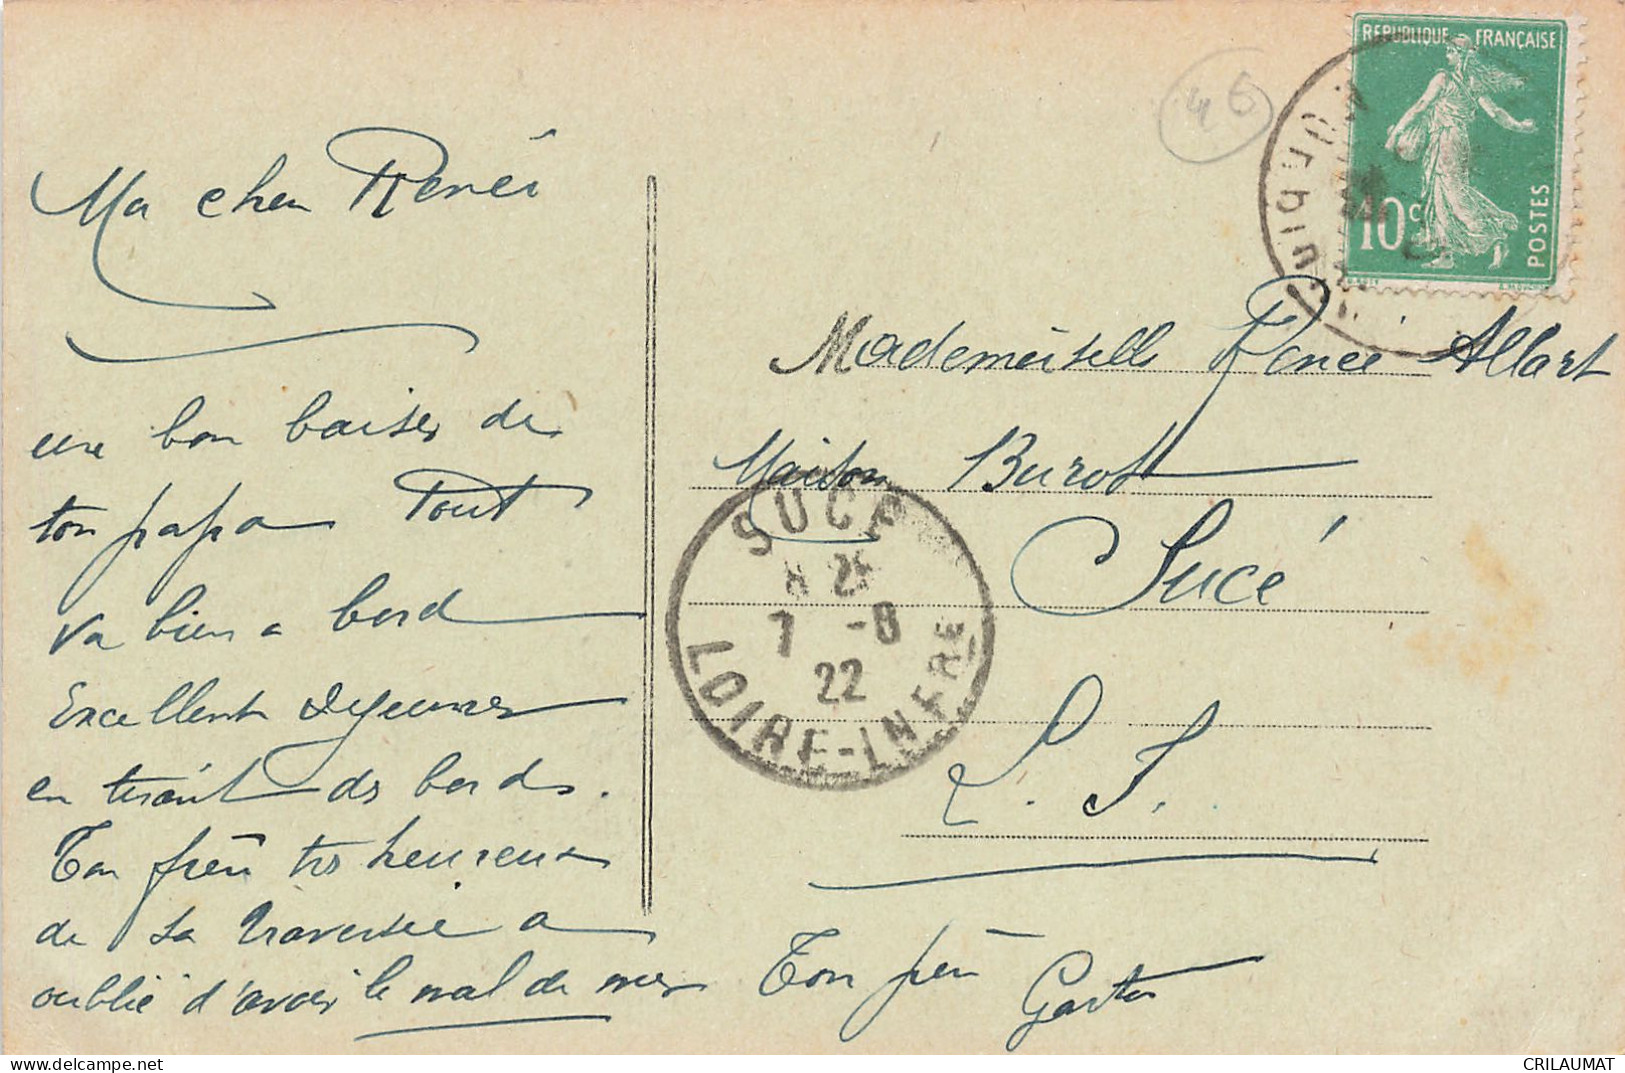 Ma cher Renée
une bon baiser de
ton papa Tout
va bien a bord
Excellent dejeuner
en tirant des bords.
Ton frère très heureux
de sa traversée a
oublié d'avoir le mal de mer
Ton père
Gaston
Mademoiselle Renée Allart
Maison Burot
Sucé
L. I.
46
REPUBLIQUE FRANÇAISE
10c
POSTES
SUCE
8 25
7 -8
22
LOIRE-INFRE
CRILAUMAT